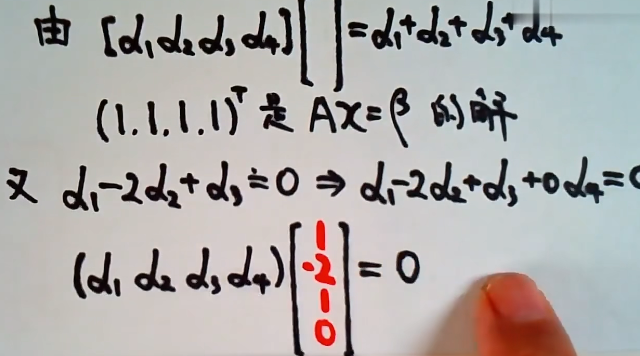 由 [α₁ α₂ α₃ α₄][ ]=α₁+α₂+α₃+α₄
(1.1.1.1)ᵀ是 Ax=β 的解
又 α₁-2α₂+α₃=0 ⇒ α₁-2α₂+α₃+0α₄=0
(α₁ α₂ α₃ α₄)[1 -2 1 0]=0